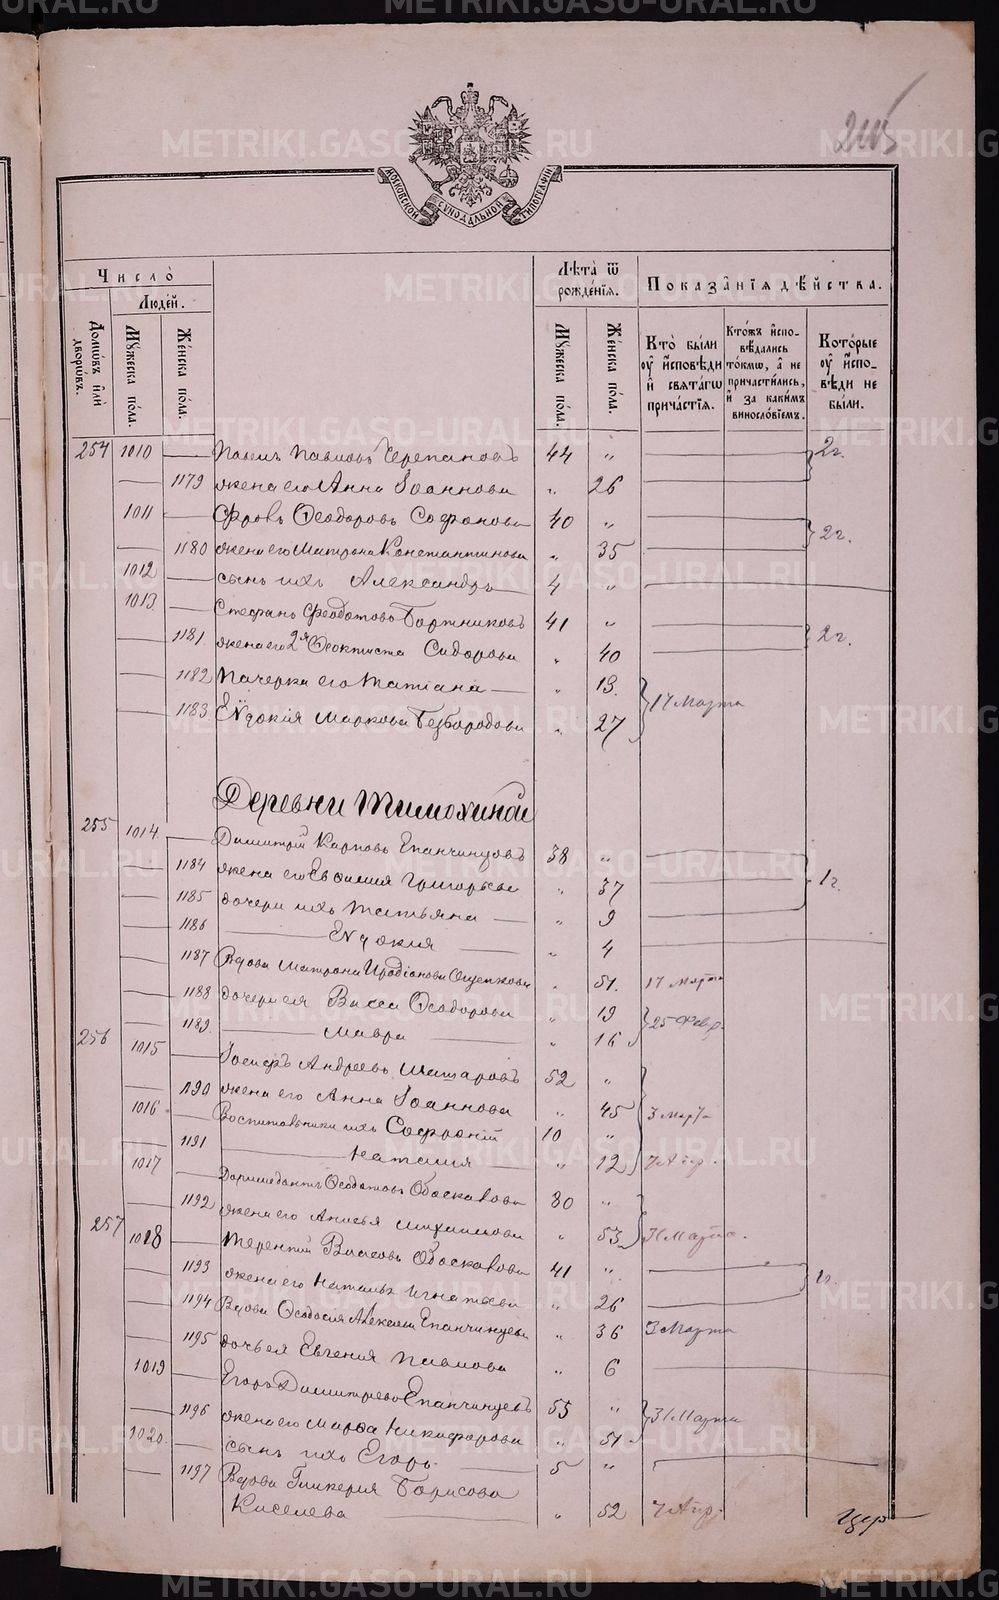 215
МОСКОВСКОЙ СѴНОДАЛЬНОЙ ТИПОГРАФІИ
Число̀
Людей.
Домѡвъ и҆лѝ дворѡвъ.
Мꙋжеска по́ла.
Же́нска по́ла.
Лѣта̀ ѿ рожде́нїѧ.
Мꙋжеска по́ла.
Же́нска по́ла.
Показа́нїѧ дѣ́йства.
Кто̀ бы́ли ᲂу҆ и҆сповѣди и҆ свѧта́гѡ прича́стїѧ.
Кто́жъ и҆спо-вѣ́дались то́кмѡ, а҆ не причасти́лись, и҆ за каки́мъ винослові́емъ.
Кото́рые ᲂу҆ и҆спо-вѣди не бы́ли.
254 1010 Павловъ Черепановъ 44 „ 2 г.
1179 жена его Анна Іоаннова „ 26
1011 Фролъ Ѳеодоровъ Софонова 40 „ 2 г.
1180 жена его Матрона Константинова „ 35
1012 сынъ ихъ Александръ 4 „
1013 Стефанъ Феодотовъ Бортниковъ 41 „ 2 г.
1181 жена его 2я Ѳеоктиста Сидорова „ 40
1182 Пачерка его Татіана „ 13. 17 Марта
1183 Еѵдокія Маркова Безбородова „ 27
Деревни Тимохиной
255 1014 Димитрій Карповъ Епанчинцовъ 38 „ 1 г.
1184 жена его Евфимія Григорьева „ 37
1185 дочери ихъ Татьяна „ 9
1186 Еѵдокия „ 4
1187 Вдова Матрона Иродіонова Ощепкова „ 51. 17 Марта
1188 дочери ея Васса Ѳеодорова „ 19 25 Февр.
1189 Мавра „ 16
256 1015 Іосифъ Андреевъ Шашаровъ 52 „
1190 жена его Анна Іоаннова „ 45 3 Мар
1016 Воспитанники ихъ Софроній 10 „
1191 Наталия „ 12 7 Апр.
1017 Ѳеодотовъ Обоскалова 80 „
1192 жена его Анисья Михаилова „ 53 31 Марта.
257 1018 Терентий Власовъ Обоскалова 41 „ 1 г.
1193 жена его Наталья Игнатьева „ 26
1194 Вдова Ѳеодосия Алексеева Епанчинцева „ 36 3 Марта
1195 дочь ея Евгения Павлова „ 6
1019 Егоръ Димитревъ Епанчинцевъ 55 „ 31 Марта
1196 жена его Марѳа Никифорова „ 51
1020. сынъ ихъ Егоръ 5 „
1197 Вдова Гликерия Борисова
Киселева „ 52 7 Апр.